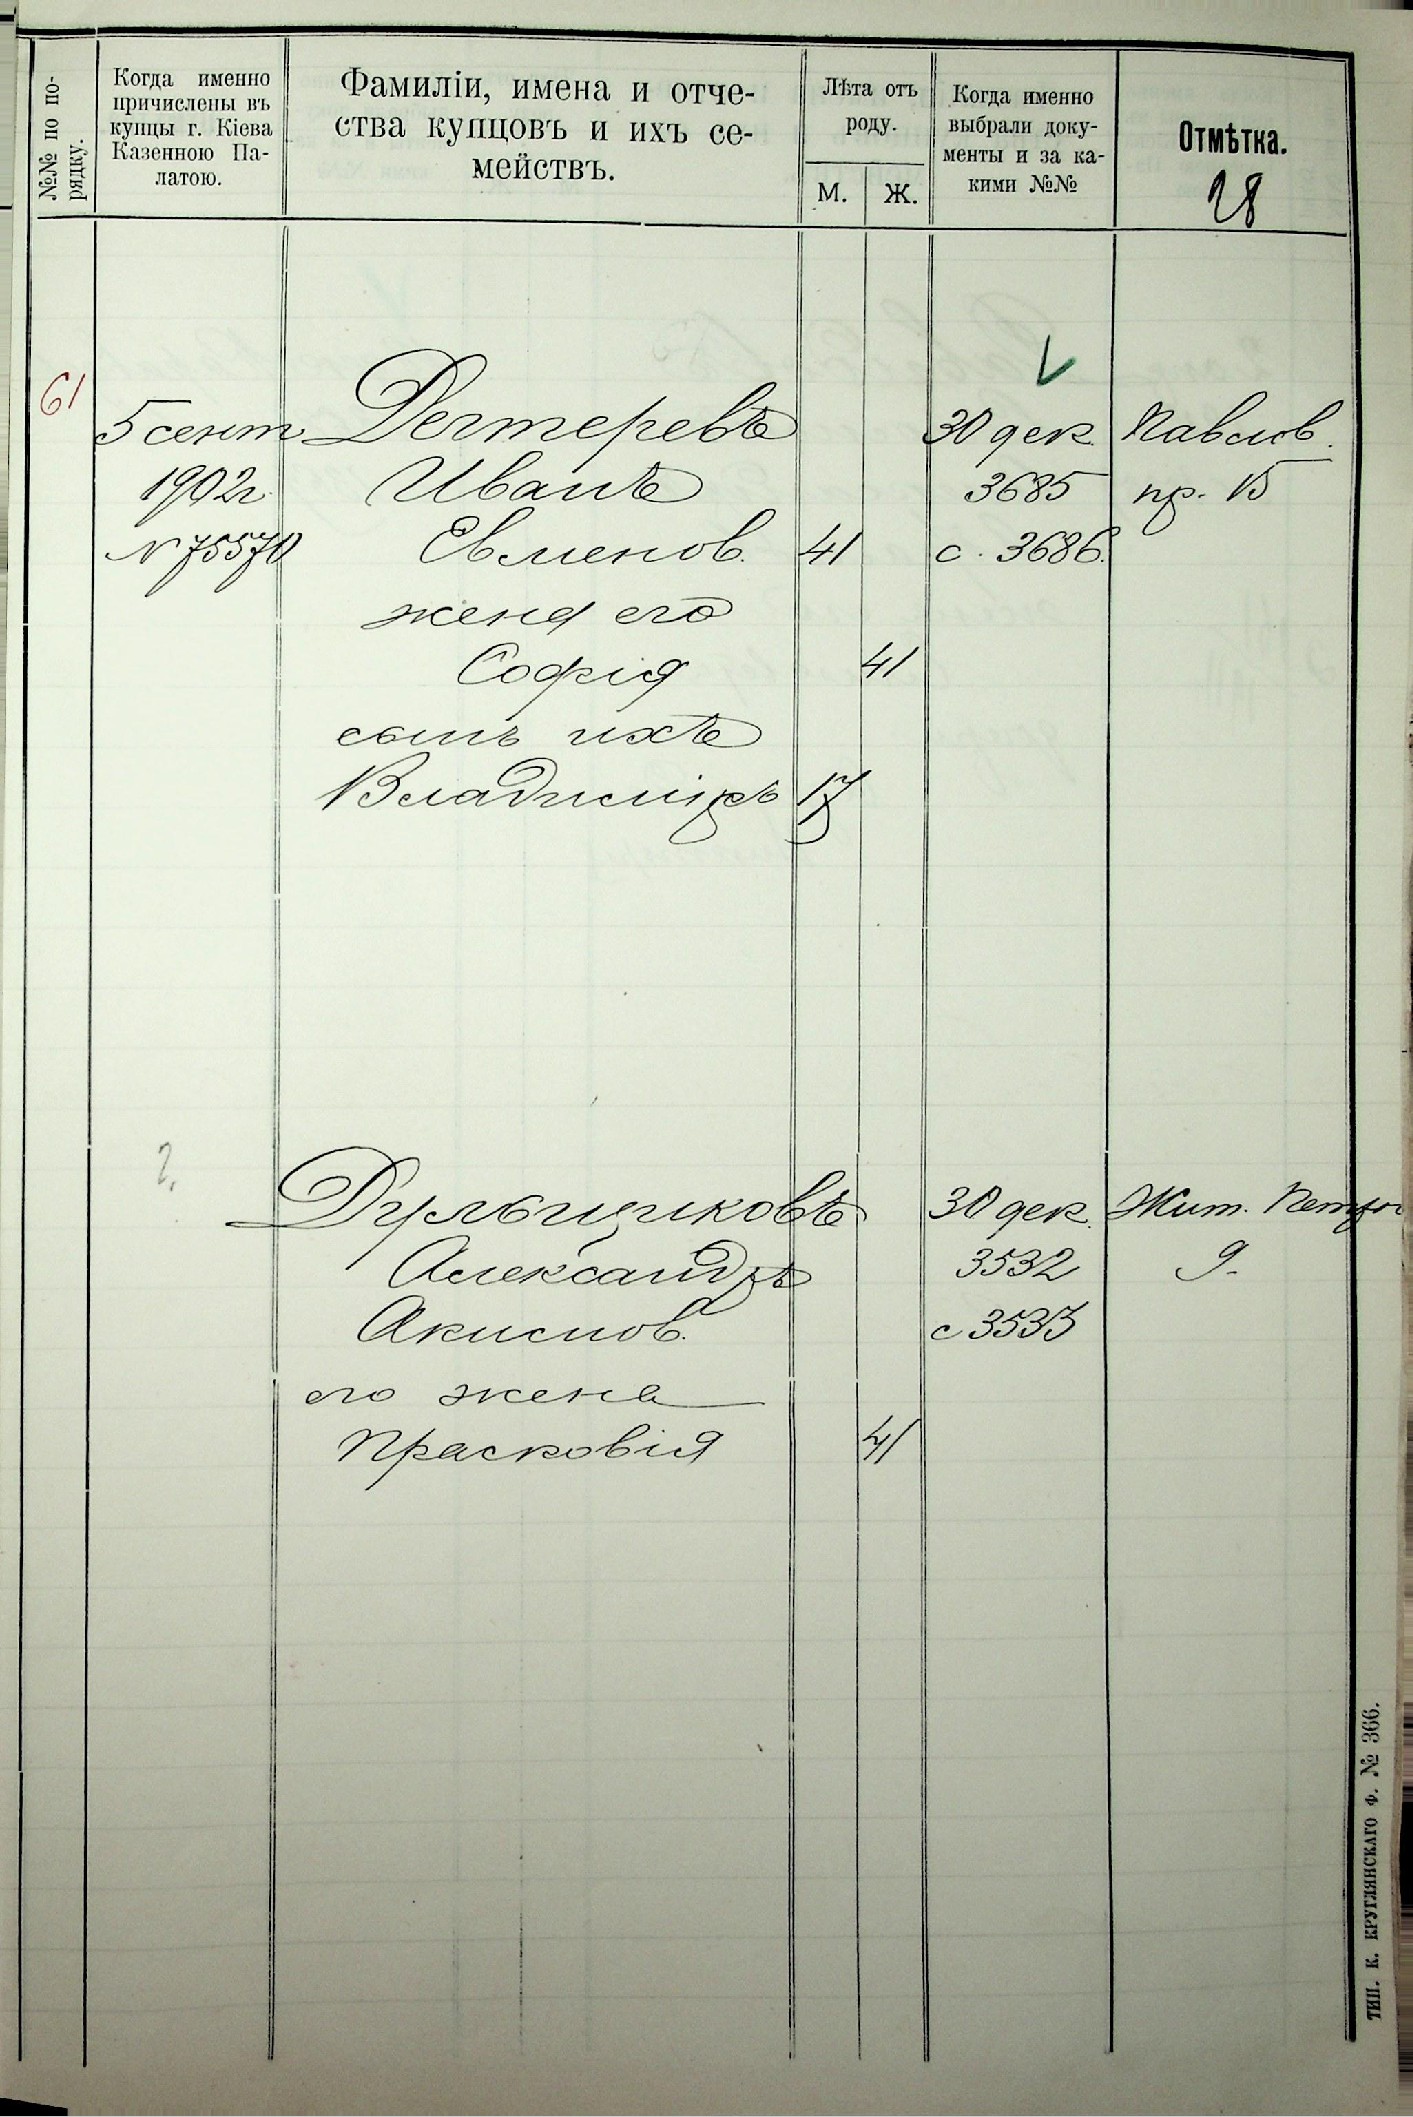 №№ по по-
рядку.
Когда именно
причислены въ
купцы г. Кіева
Казенною Па-
латою.
Фамиліи, имена и отче-
ства купцовъ и ихъ се-
мействъ.
Лѣта отъ
роду.
М.
Ж.
Когда именно
выбрали доку-
менты и за ка-
кими №№
Отмѣтка.
28
61
5 сент
1902г
N 75570
Дегтеревъ
Иванъ
Евменов. 41
жена его
Софія 41
сынъ ихъ
Владиміръ 17
30 дек.
3685
с. 3686.
Павлов.
пр. 15
2.
Дульщиковъ
Александръ
Акимов.
его жена
Прасковія 41
30 дек.
3532
с 3533
Жит.
9.
ТИП. К. КРУГЛЯНСКАГО Ф. № 366.